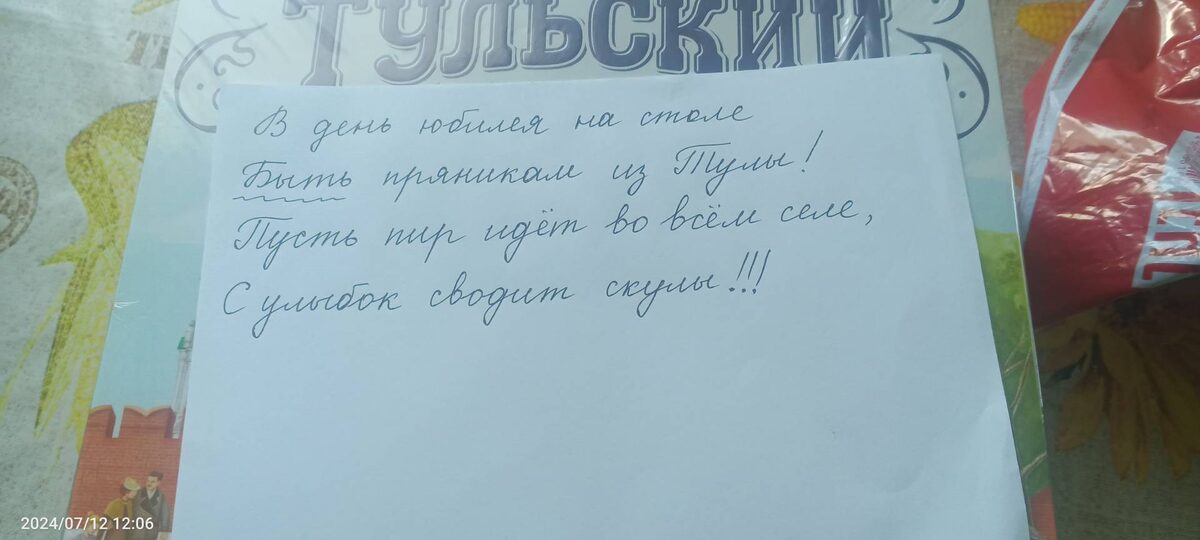 ТУЛЬСКИЙ
В день юбилея на столе
Быть пряникам из Тулы!
Пусть пир идёт во всём селе,
С улыбок сводит скулы!!!
2024/07/12 12:06